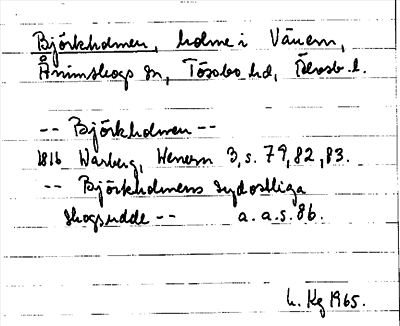 Björkholmen, holme i Vänern,
Ånimskogs sn, Tössbo hd, Älvsb. l.
-- Björkholmen --
1816 Warberg, Wenern 3, s. 79, 82, 83.
-- Björkholmens sydostliga
skogsudde -- a. a. s. 86.
Kg 1965.